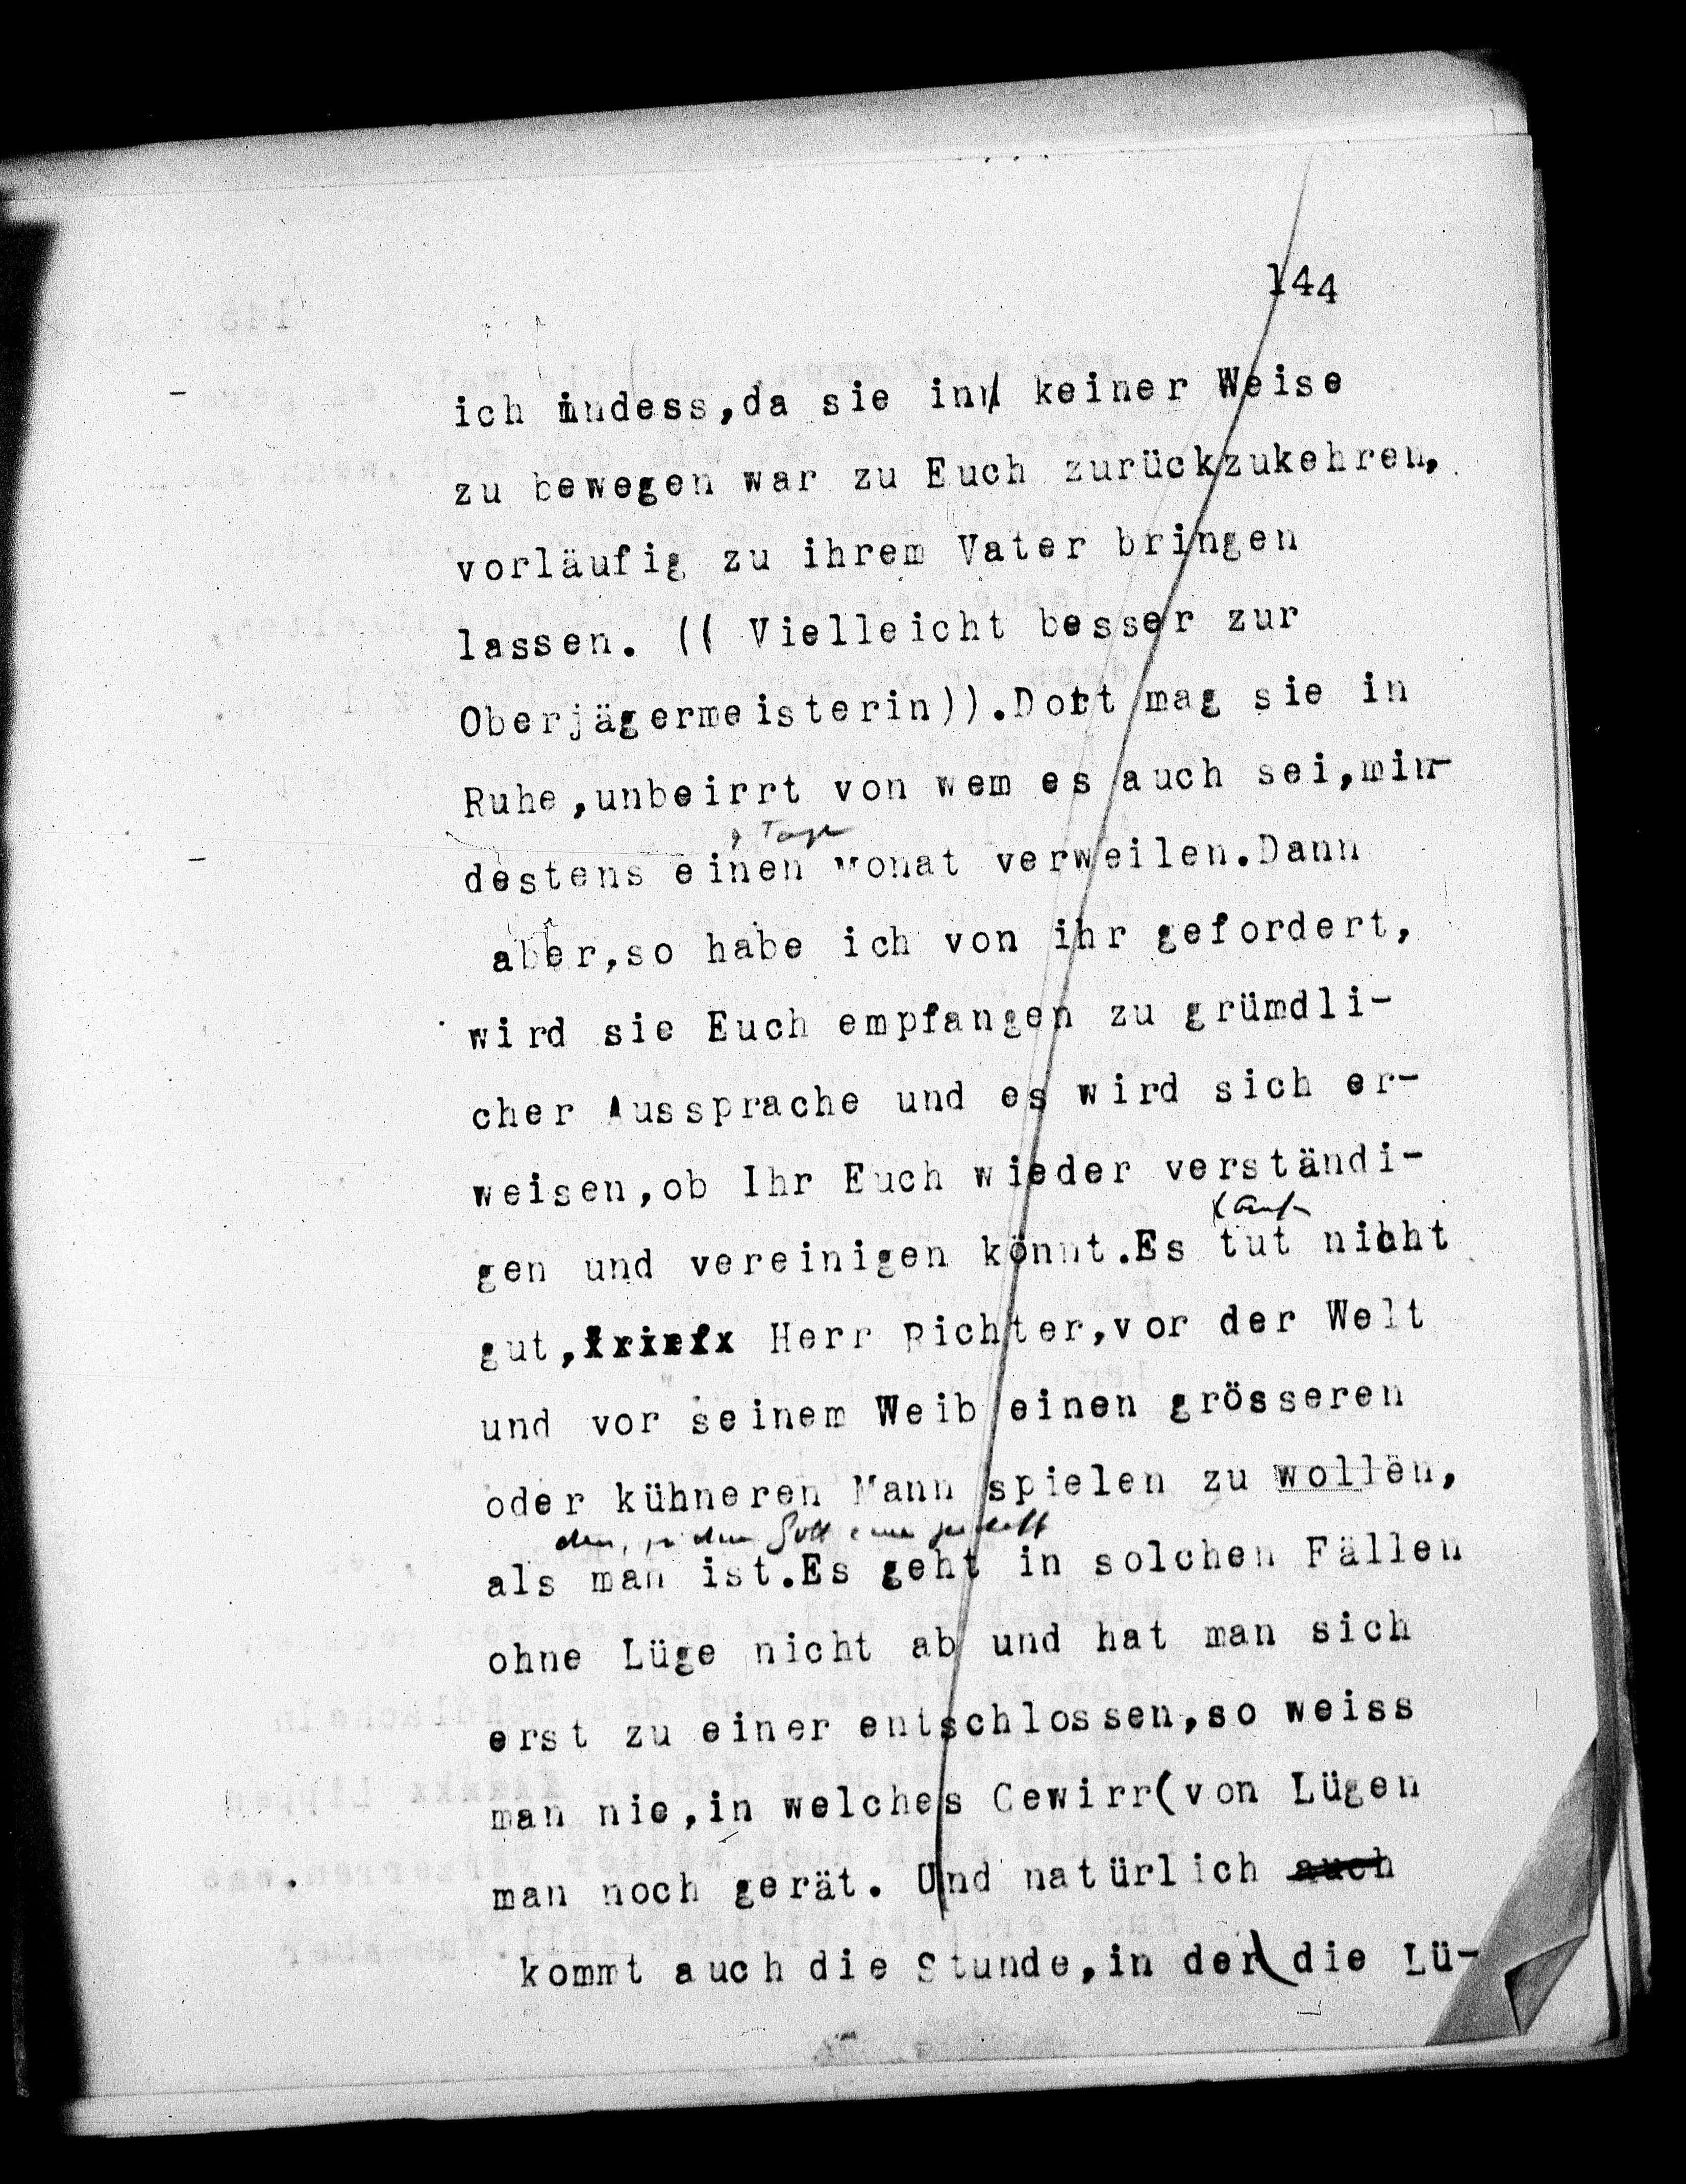 144
ich indess,da sie in keiner Weise
zu bewegen war zu Euch zurückzukehren,
vorläufig zu ihrem Vater bringen
lassen. (( Vielleicht besser zur
Oberjägermeisterin)).Dort mag sie in
Ruhe,unbeirrt von wem es auch sei,min-
Tage
destens einen Monat verweilen.Dann
aber,so habe ich von ihr gefordert,
wird sie Euch empfangen zu grümdli-
cher Aussprache und es wird sich er-
weisen,ob Ihr Euch wieder verständi-
gen und vereinigen könnt.Es tut nicht
gut, Herr Richter,vor der Welt
und vor seinem Weib einen grösseren
oder kühneren Mann spielen zu wollen,
als man ist.Es geht in solchen Fällen
ohne Lüge nicht ab und hat man sich
erst zu einer entschlossen,so weiss
man nie,in welches Gewirr(von Lügen
man noch gerät. Und natürlich auch
kommt auch die Stunde,in der die Lü-